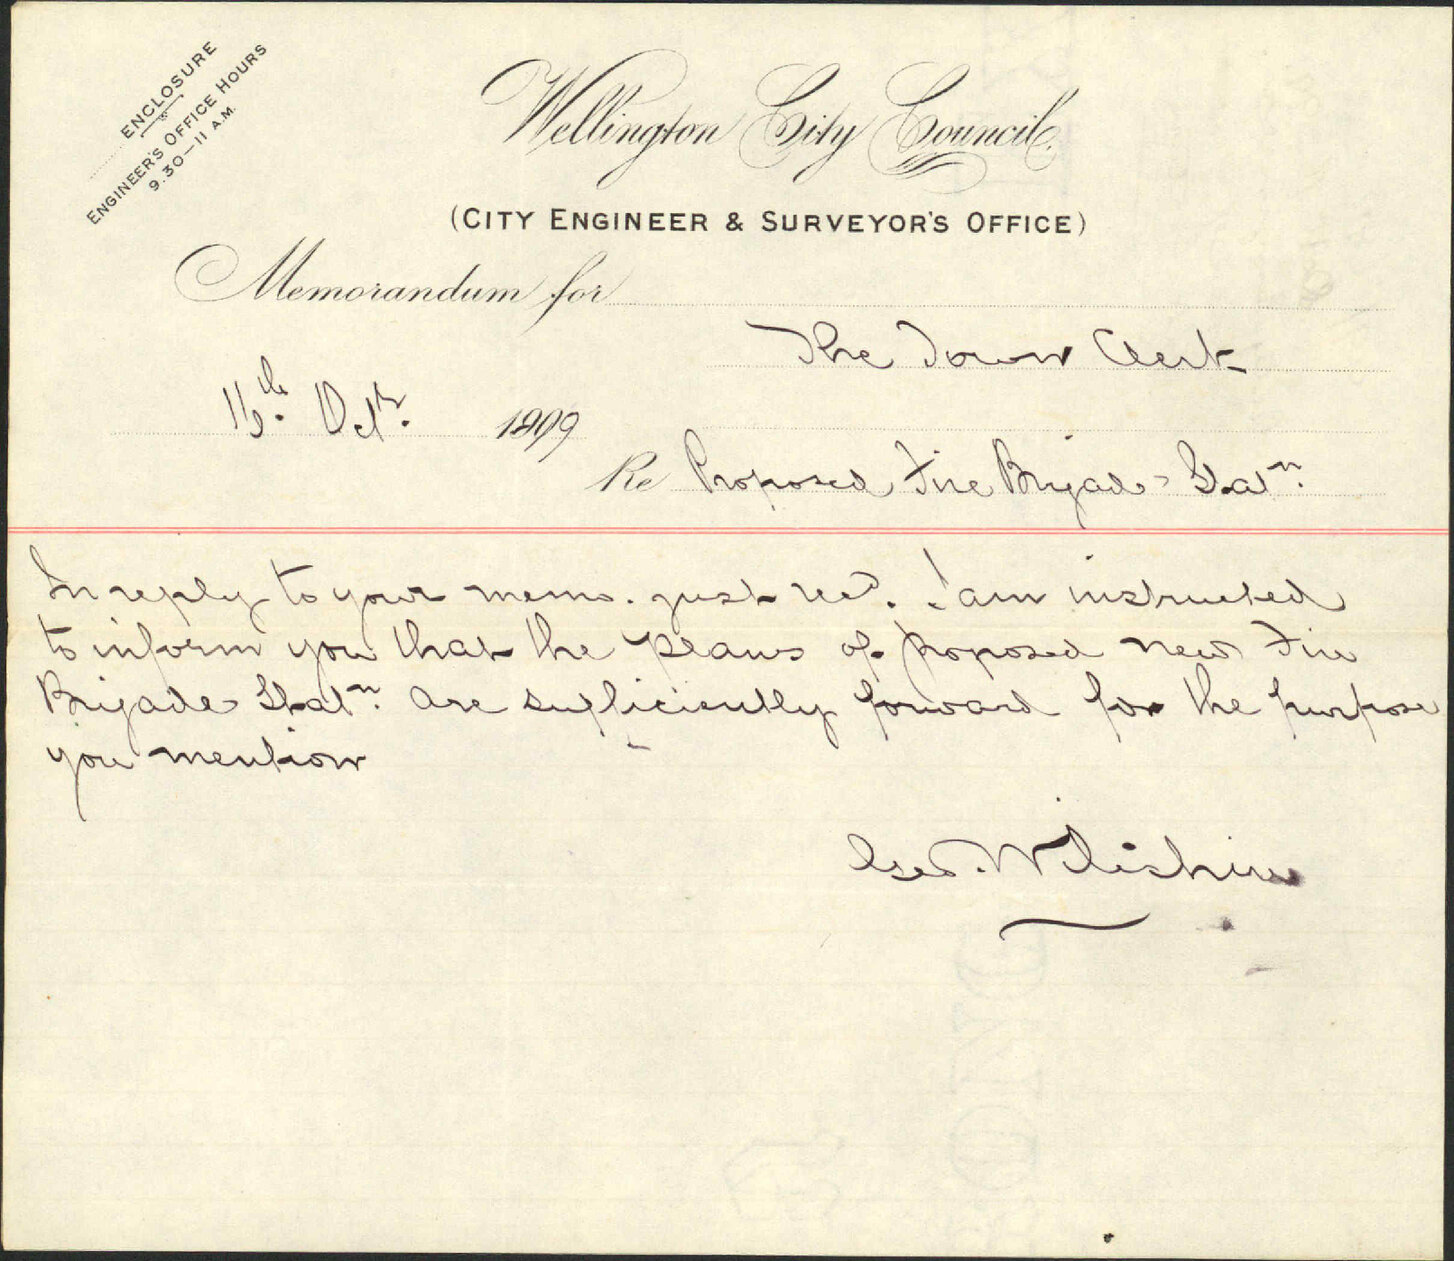 ENCLOSURE
ENGINEER'S OFFICE HOURS
9.30—11 A.M.
Wellington City Council.
(CITY ENGINEER & SURVEYOR'S OFFICE)
Memorandum for
The Town Clerk
Octr. 1899
Re Proposed Fire Brigade Statn.
In reply to your memo. just recd. I am instructed
to inform you that the plans of proposed new Fire
Brigade Statn. are sufficiently forward for the purpose
you mention
Geo. Wiltshire